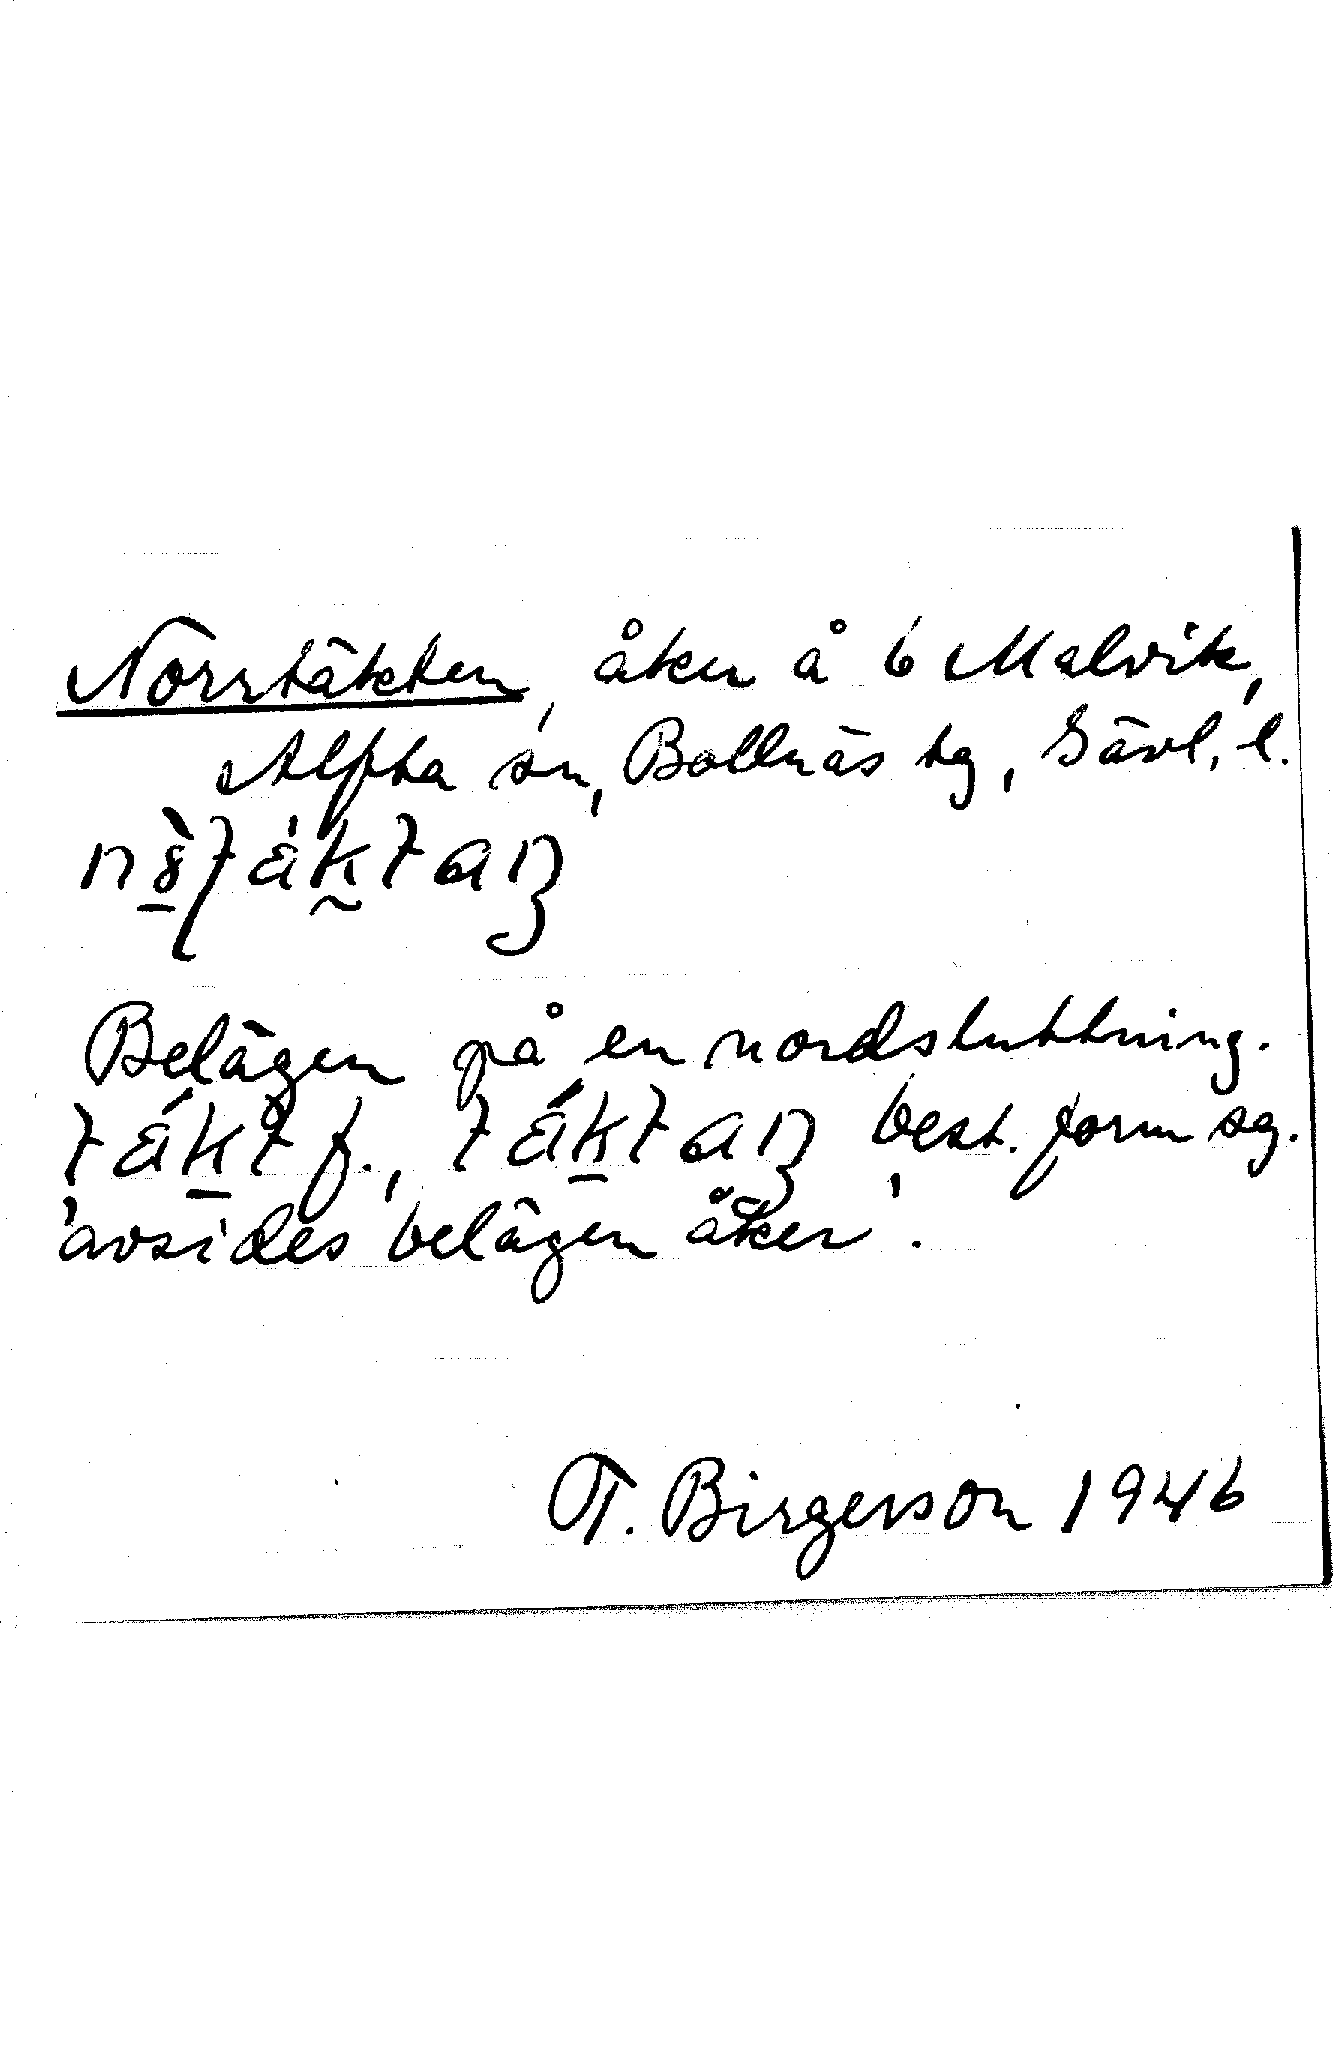 Norrtäkten, åker å 6 Malvik,
Alfta sn, Bollnäs tg, Gävl. l.
Belägen på en nordsluttning.
f., best. form sg.
'avsides belägen åker'.
T. Birgerson 1946